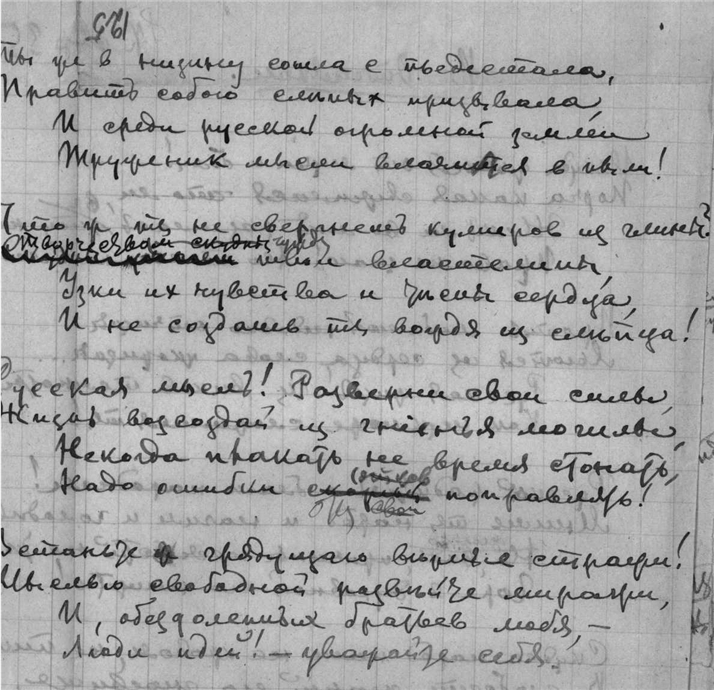 125
Ты уж в низину сошла с пьедестала,
Править собою слепых призывала,
И среди русской огромной земли
Труженик мысли влачится в пыли!
Что ж ты не свергнешь кумиров из глины?
твои властелины,
Узки их чувства и тесны сердца,
И не создашь ты вождя из слепца!
Русская мысль! Разверни свои силы,
Жизнь возсоздай из гниенья могилы,
Некогда плакать, не время стонать,
Надо ошибки поправлять!
Встаньте ж грядущаго верные стражи!
Мыслью свободной развейте миражи,
И, обездоленных братьев любя, –
Люди идей! – уважайте себя.